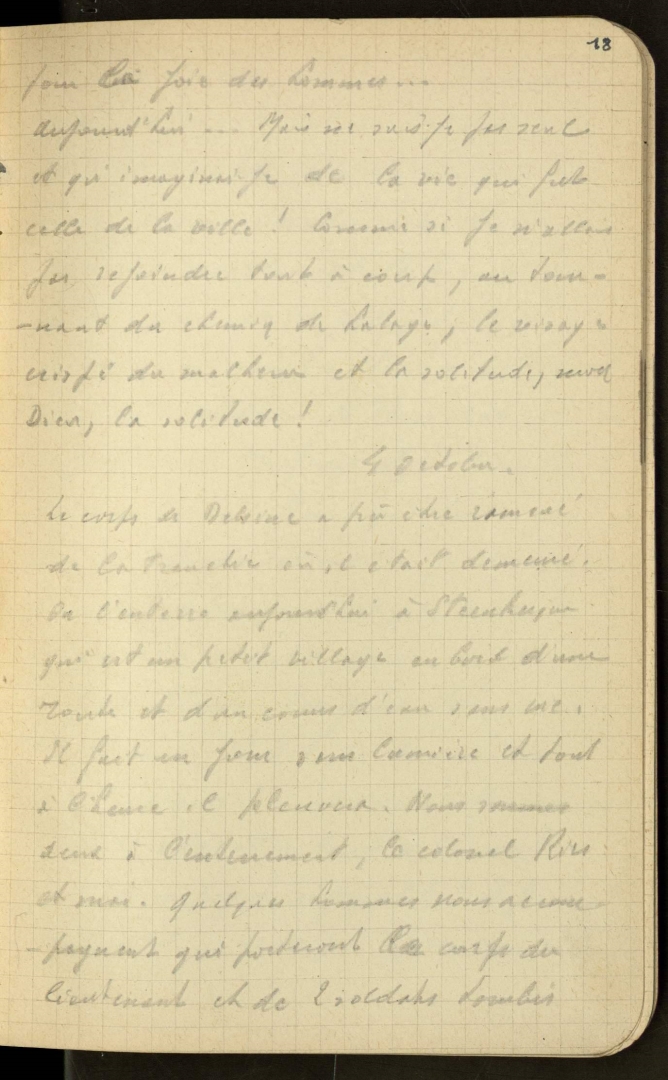 18
pour la joie des hommes...
aujourd'hui ... Mais ne suis-je pas seul
et qu'imaginai-je de la vie qui fut
celle de la ville ! Comme si je n'allais
pas rejoindre tout à coup, au tour-
-nant du chemin de halage, le visage
crispé du malheur et la solitude, mon
Dieu, la solitude !
4 octobre.
Le corps de a pû être ramené
de la tranchée où il était demeuré.
On l'enterre aujourd'hui à
qui est un petit village au bord d'une
route et d'un cours d'eau sans
Il fait un jour sans lumière et tout
à l'heure il pleuvra. Nous sommes
deux à l'enterrement, le colonel
et moi. Quelques hommes nous accom-
-pagnent qui porteront le corps du
lieutenant et de 2 soldats tombés